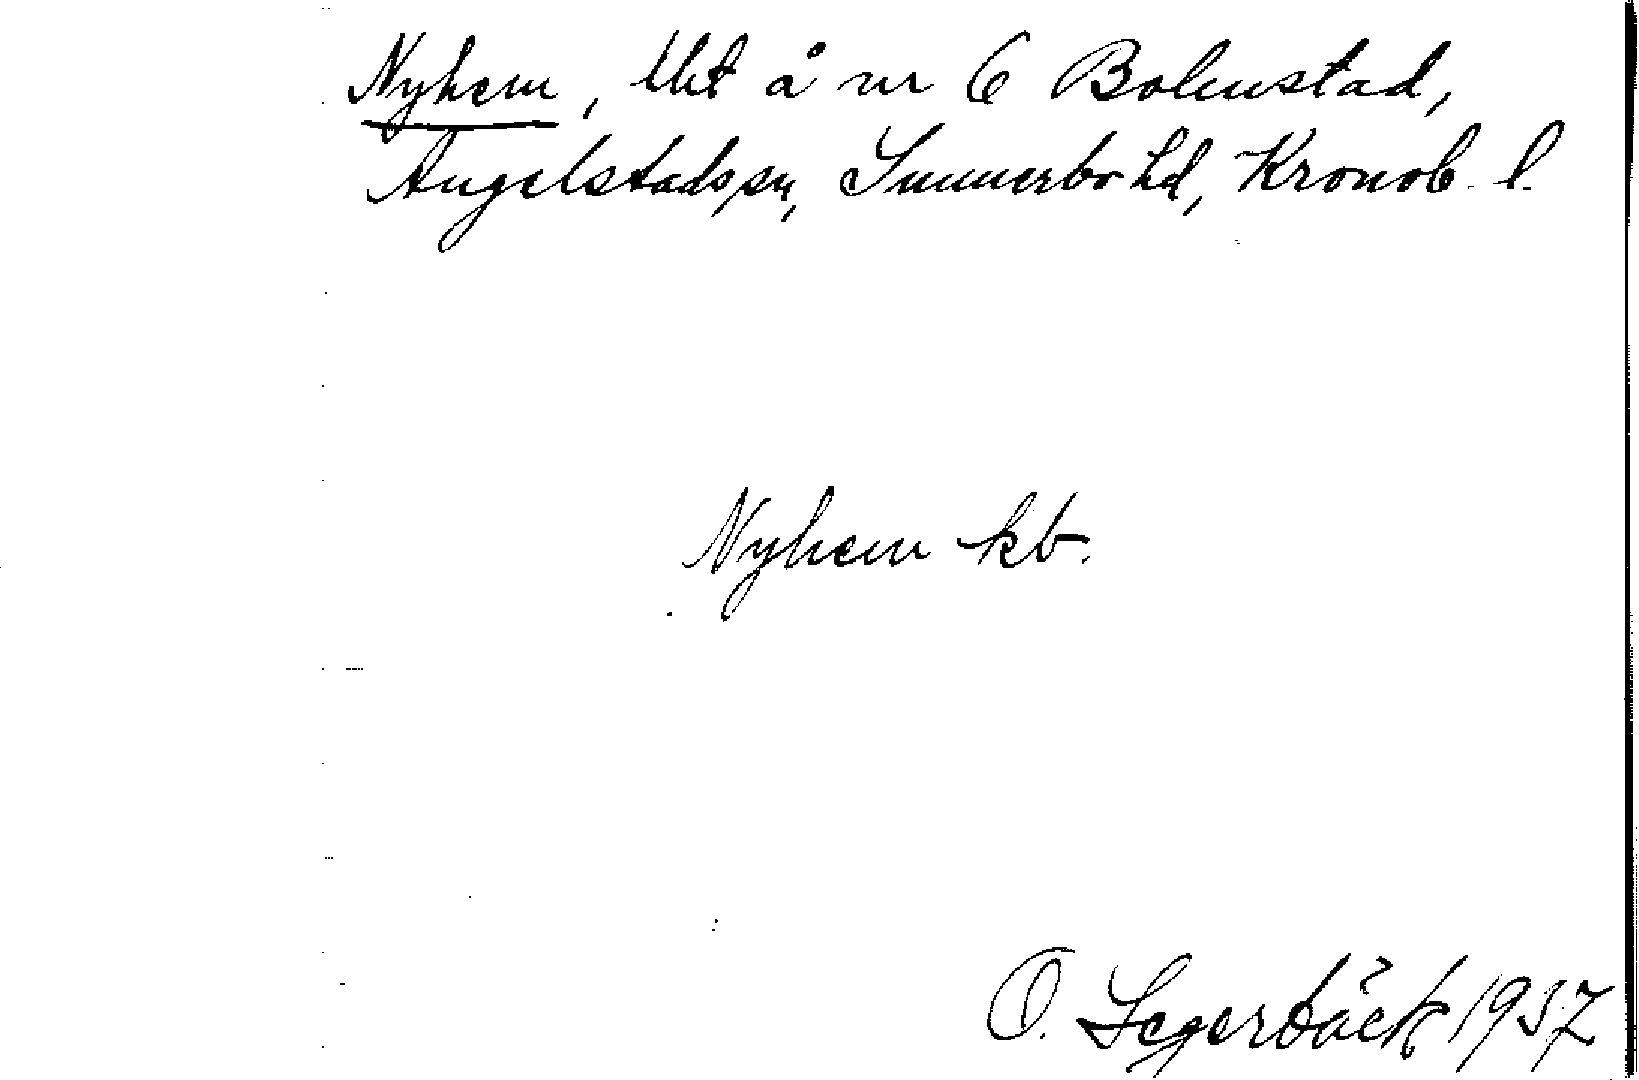 Nyhem, lht å nr 6 Bolmstad,
Angelstads sn, Sunnerbo hd, Kronob. l.
Nyhem kb.
O. Segerbäck 1937